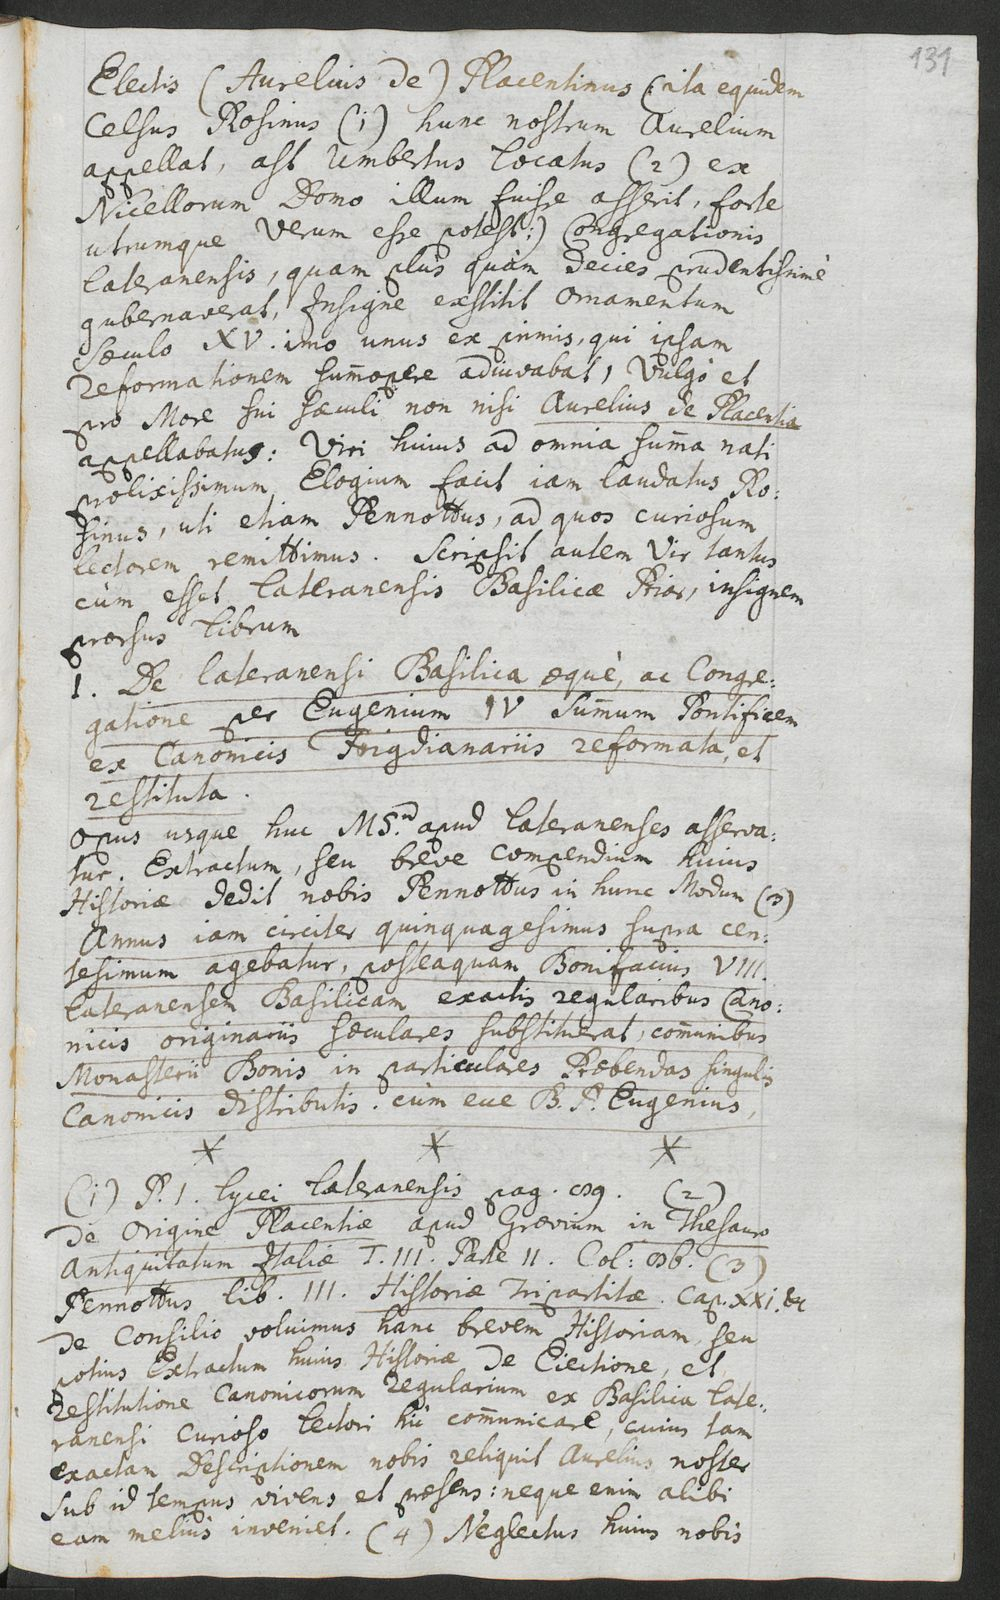 131
Electis (Aurelius de) Placentinus (: ita equidem
Celsus Rosinus (1) hunc nostrum Aurelium
appellat, ast Umbertus Locatus (2) ex
Nicellorum Domo illum fuisse asserit, forte
utrumque verum esse potest :) Congregationis
Lateranensis, quam plus quàm decies prudentissimè
gubernaverat, Insigne exstitit ornamentum
Sæculo XV. imo unus ex primis, qui ipsam
Reformationem sum̄opere adiuvabat, Vulgò et
pro More sui sæculi non nisi Aurelius de Placentia
appellabatus: Viri huius ad omnia sum̄a nati
prolixissimum Elogium facit iam laudatus Ro:
sinus, uti etiam Pennottus, ad quos curiosum
lectorem remittimus. Scripsit autem Vir tantus
cùm esset Lateranensis Basilicæ Prior, insignem
prorsus Librum
1. De Lateranensi Basilica æquè, ac Congre:
gatione per Eugenium IV Sum̄um Pontificem
ex Canonicis Frigdianariis reformata, et
restituta.
Opus usque huc MS.um apud Lateranenses asserva:
tur. Extractum, seu breve compendium huius
Historiæ dedit nobis Pennottus in hunc Modum (3)
Annus iam circiter quinquagesimus supra cen:
tesimum agebatur, posteaquam Bonifacius VIII.
Lateranensem Basilicam exactis regularibus Cano:
nicis originariis sæculares substituerat, com̄unibus
Monasterii Bonis in particulares Præbendas singulis
Canonicis distributis. cùm ecce B. P. Eugenius,
(1) P. 1. Lycei Lateranensis pag. (2)
De Origine Placentiæ apud Grævium in Thesauro
Antiquitatum Italiæ T. III. Parte II. Col: (3)
Pennottus lib. III. Historiæ Tripartitæ. Cap. XXI. &c
De Consilio voluimus hanc brevem Historiam, seu
potius Extractum huius Historiæ de Eiectione, et
restitutione Canonicorum regularium ex Basilica Late:
ranensi Curioso Lectori hic com̄unicare, cuius tam
exactam Descriptionem nobis reliquit Aurelius noster
sub id tempus vivens et præsens: neque enim alibi
eam melius inveniet. (4) Neglectus huius nobis